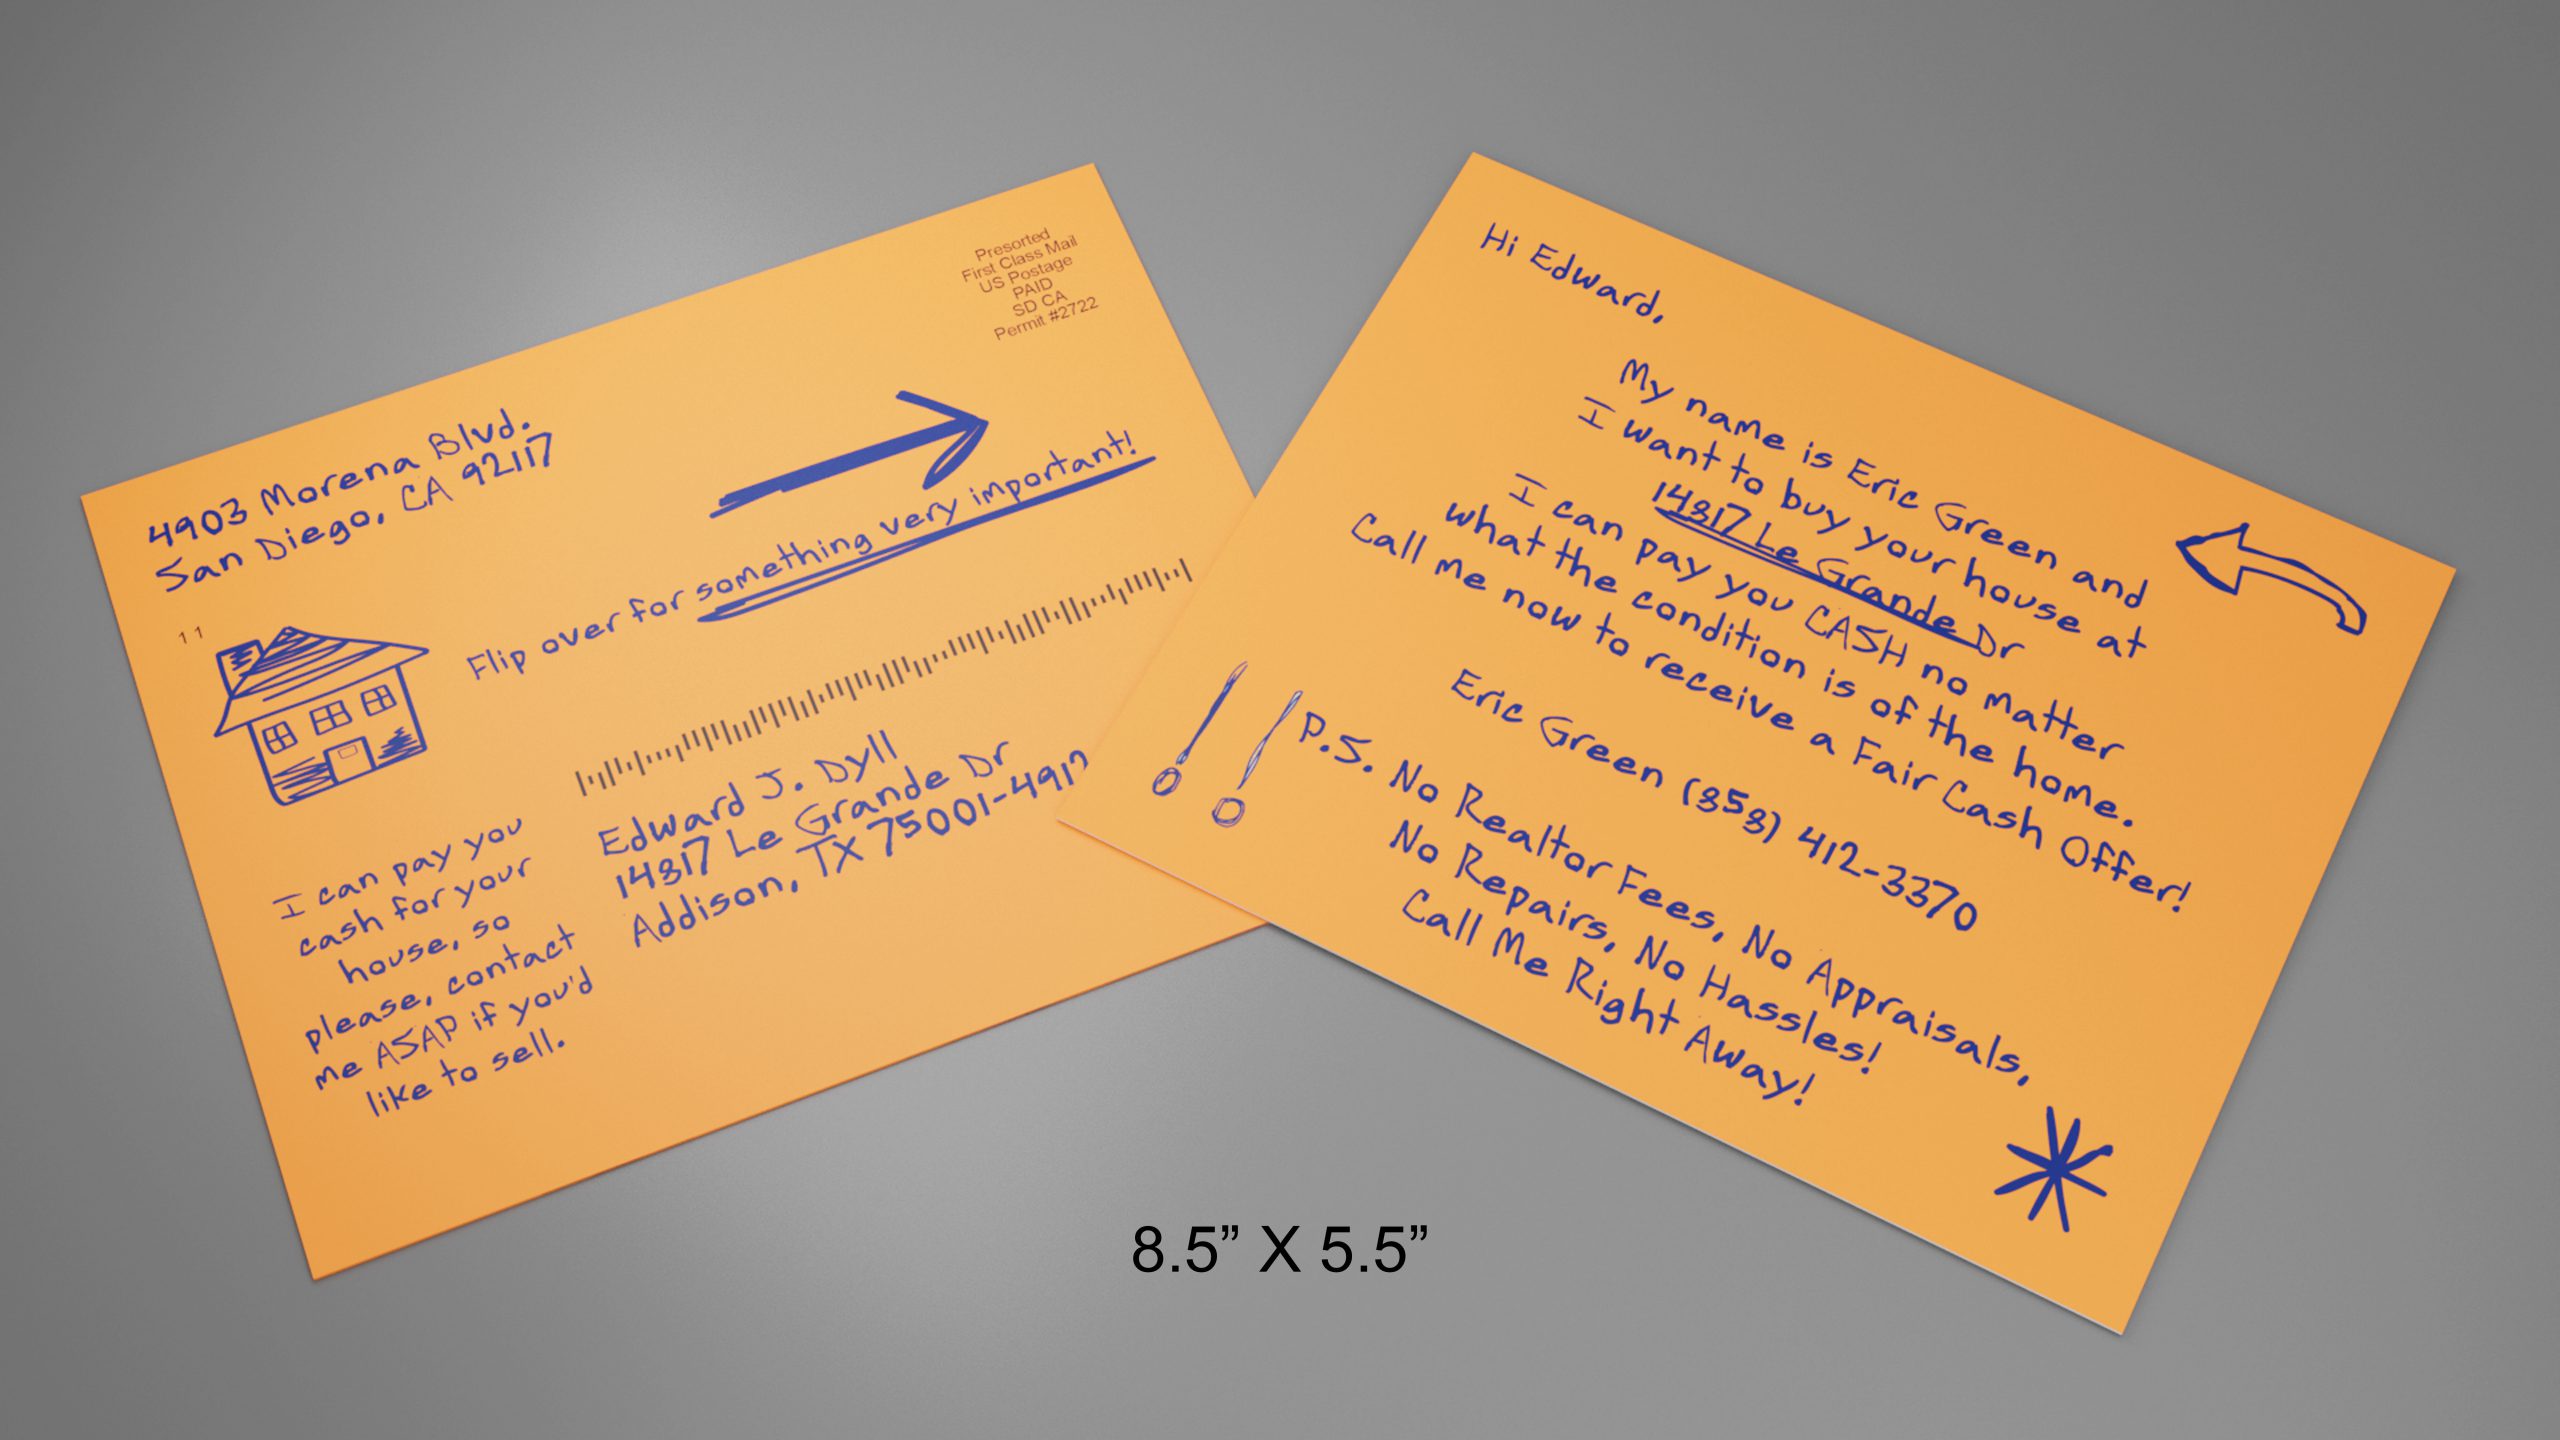 4903 Morena Blvd.
San Diego, CA 92117
Presorted
First Class Mail
US Postage
PAID
SD CA
Permit #2722
Flip over for something very important!
1 1
I can pay you
cash for your
house, so
please, contact
me ASAP if you'd
like to sell.
Edward J. Dyll
14817 Le Grande Dr
Addison, TX 75001-4917
Hi Edward,
My name is Eric Green and
I want to buy your house at
14817 Le Grande Dr
I can pay you CASH no matter
what the condition is of the home.
Call me now to receive a Fair Cash Offer!
Eric Green (858) 412-3370
P.S. No Realtor Fees, No Appraisals,
No Repairs, No Hassles!
Call Me Right Away!
8.5” X 5.5”